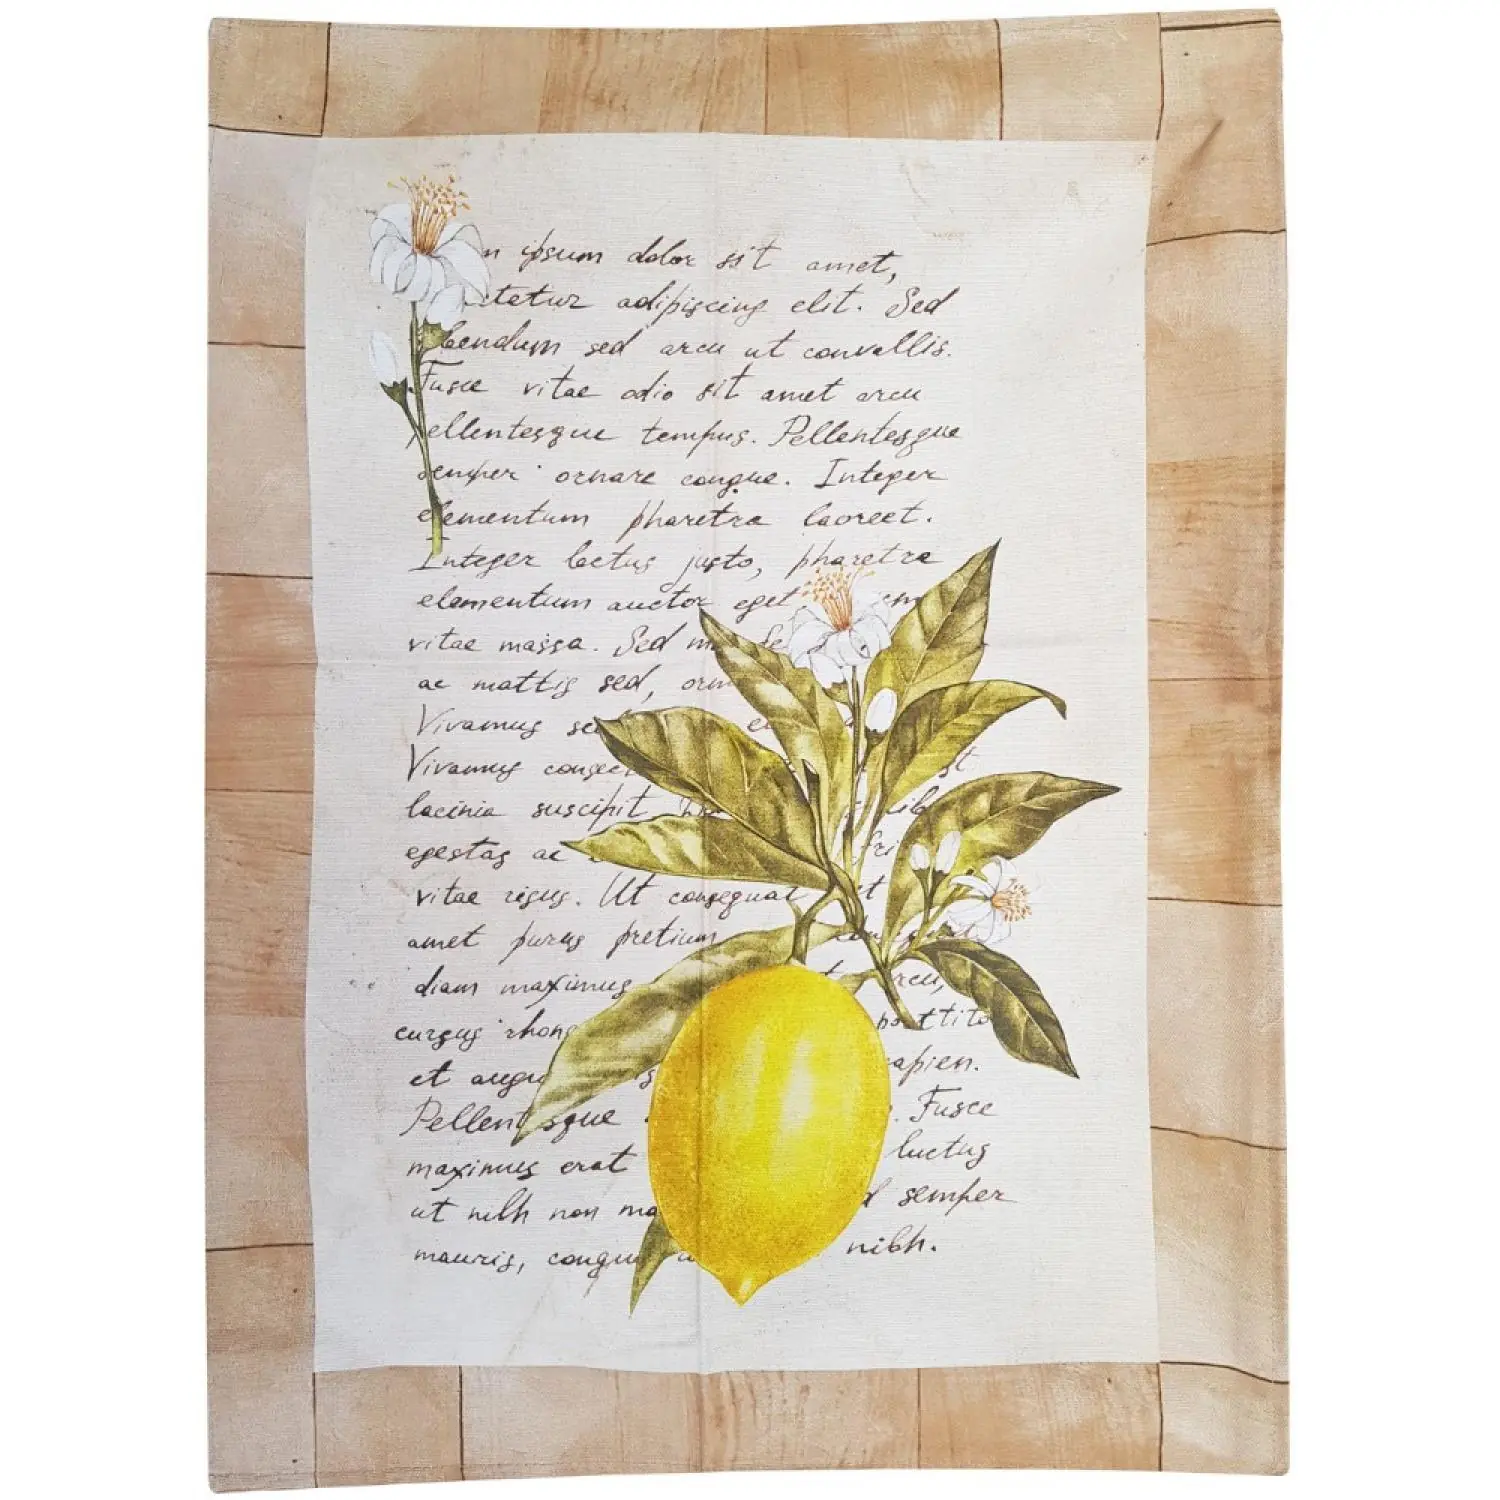 ipsum dolor sit amet,
adipiscing elit. Sed
sed arcu ut convallis.
Fusce vitae odio sit amet arcu
ellentesque tempus. Pellentesque
semper ornare congue. Integer
elementum pharetra laoreet.
Integer lectus justo, pharetra
elementum auctor eget
vitae massa. Sed
ac mattis sed,
Vivamus
Vivamus
lacinia suscipit
egestas ac
vitae risus. Ut consequat
amet purus pretium
diam maximus arcu,
cursus
et sapien.
Pellentesque . Fusce
maximus erat luctus
ut nibh non semper
mauris, nibh.